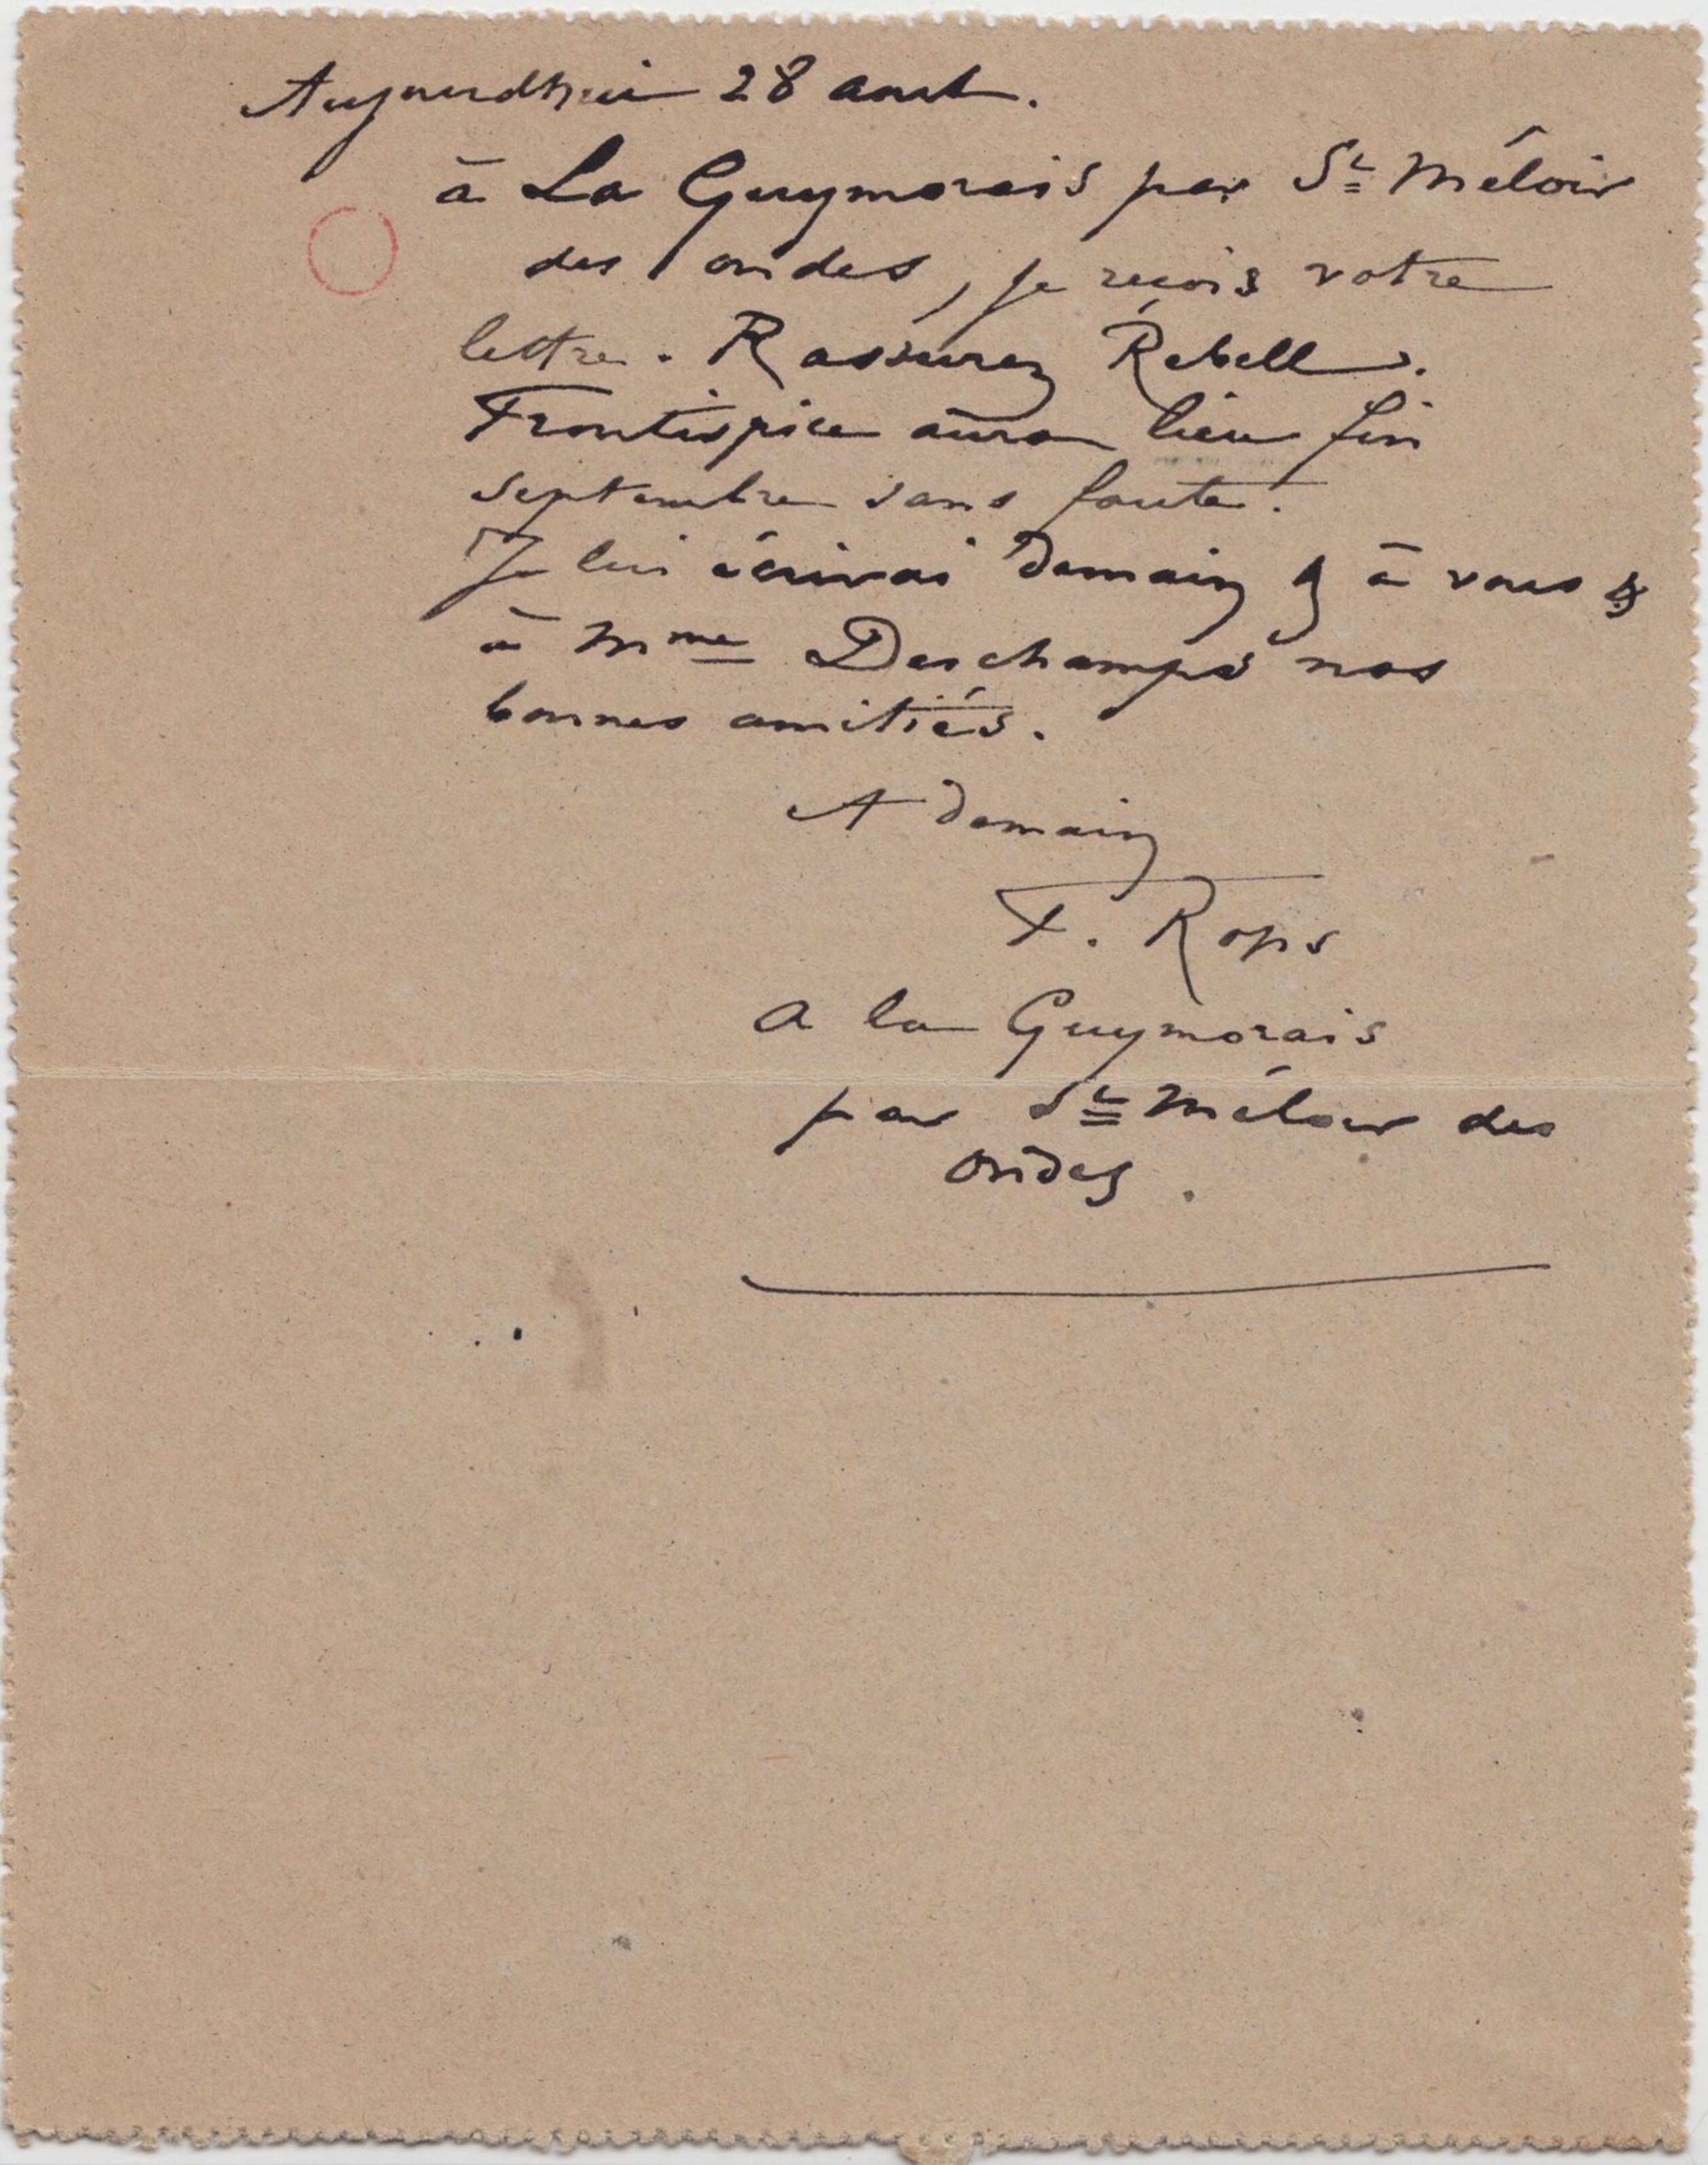 Aujourdhui 28 aout.
à La Guymorais par St Méloir
des ondes, je reçois votre
lettre. Rassurez Rebell.
Frontispice aura lieu fin
septembre sans faute.
Je lui écrirai demain & à vous &
à Mme Deschamps nos
bonnes amitiés.
A demain
F. Rops
a la Guymorais
par St Méloir des
ondes.